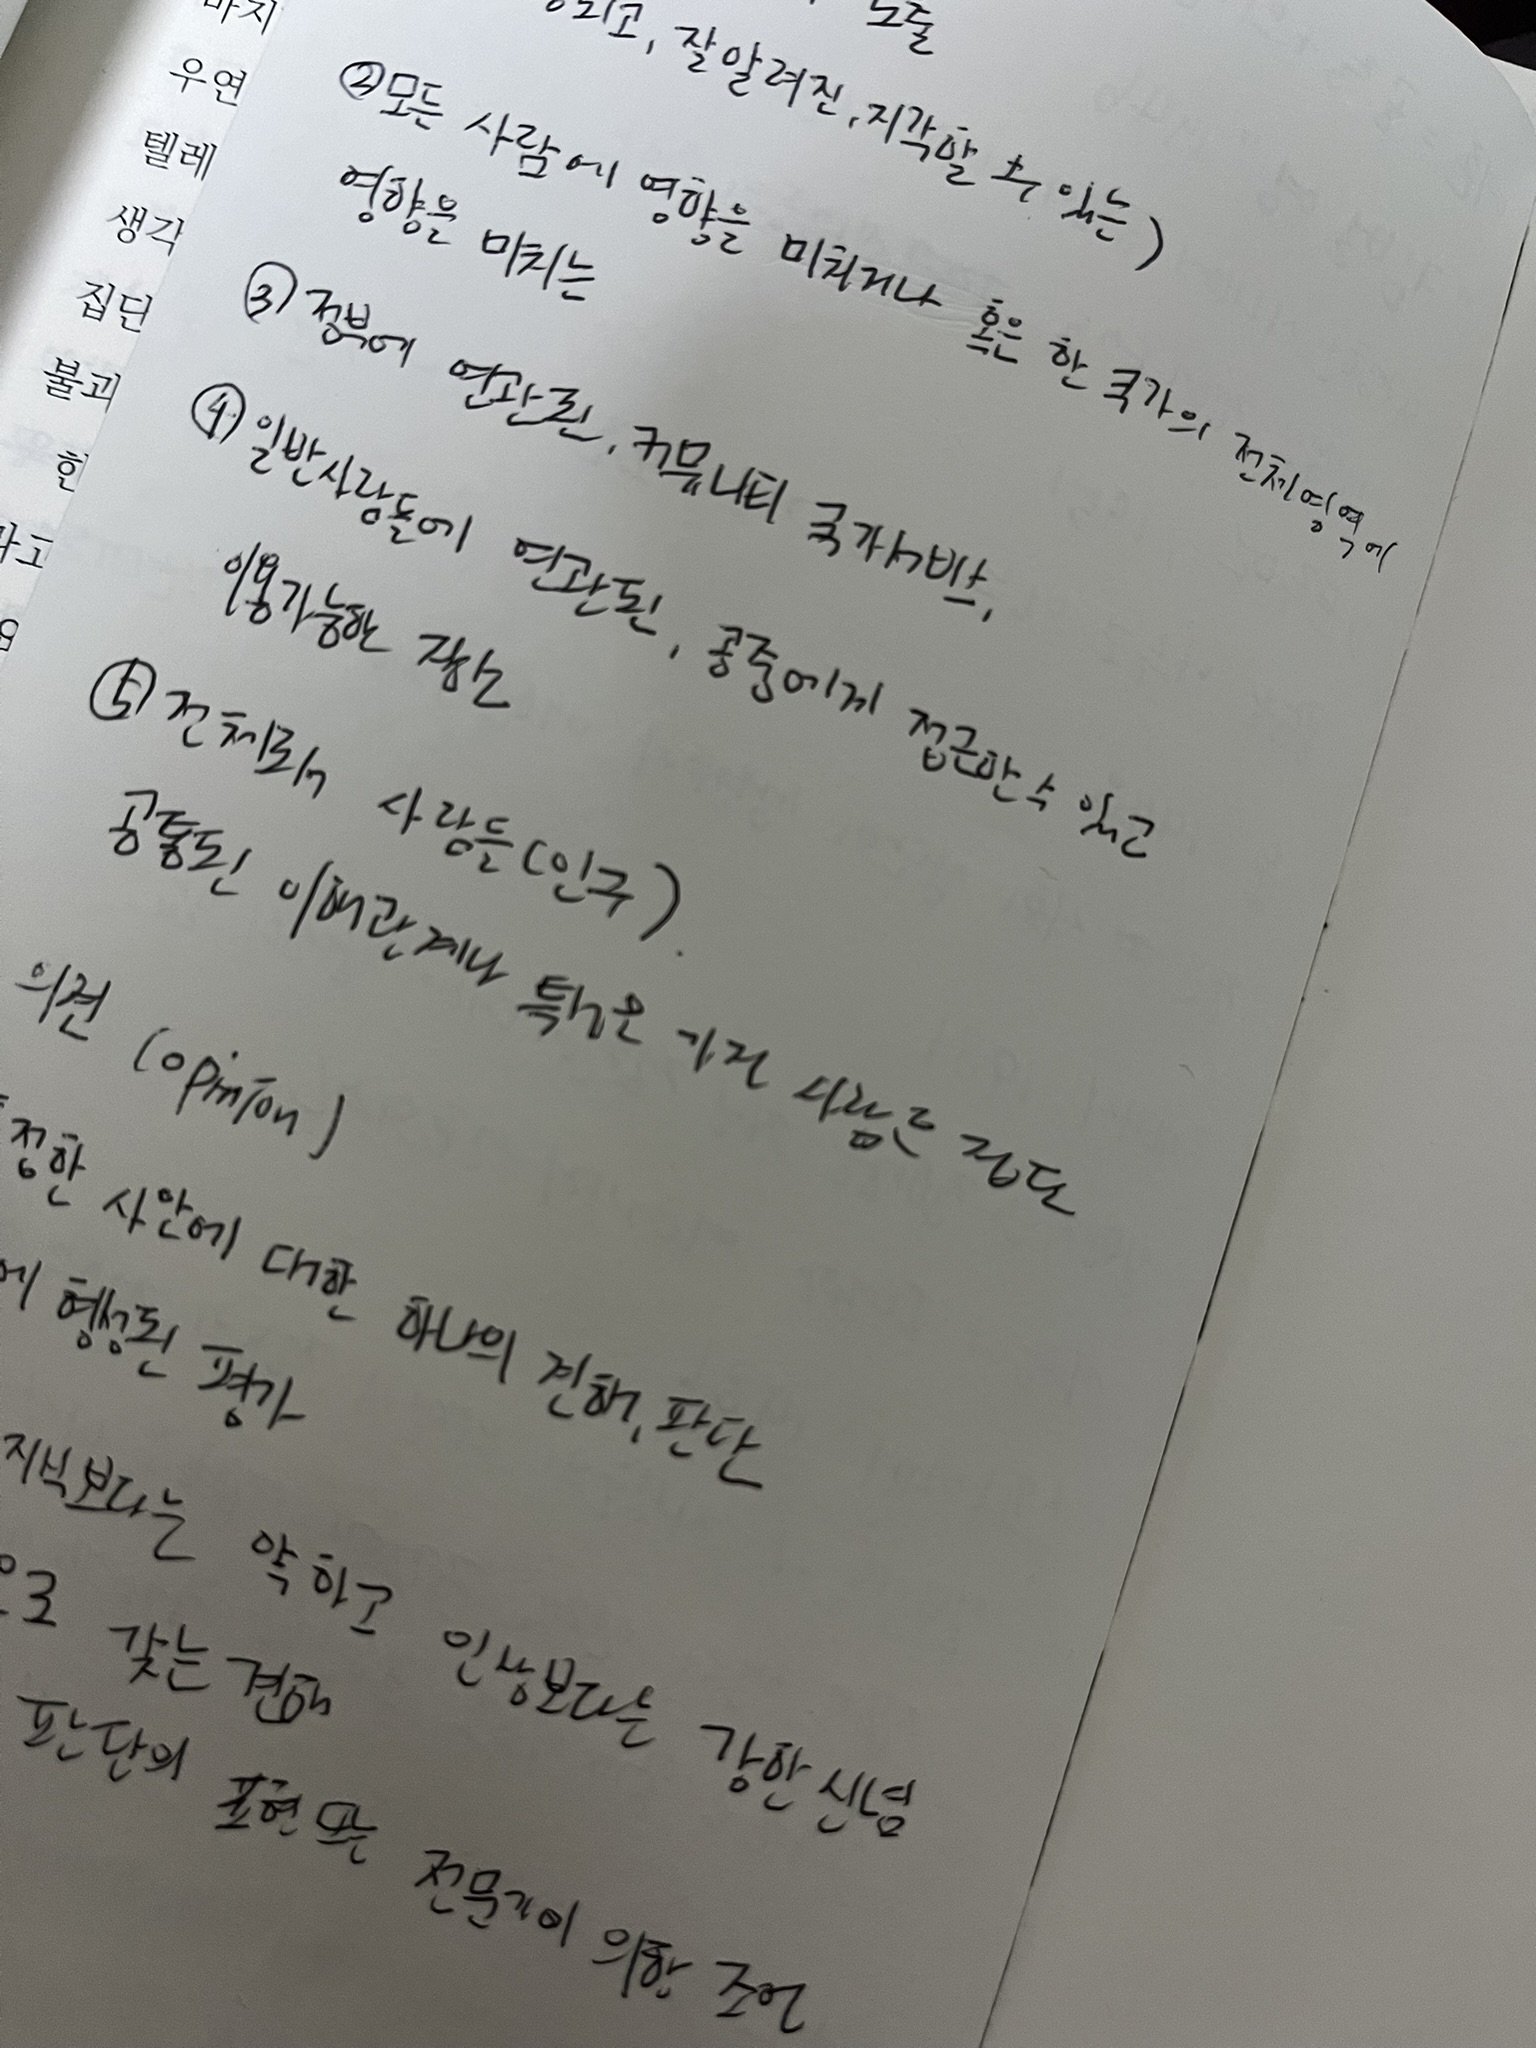 노출
잘 알려진, 지각할 수 있는)
② 모든 사람에 영향을 미치거나 혹은 한 국가의 전체영역에
영향을 미치는
③ 정부에 연관된, 커뮤니티 국가서비스,
④ 일반사람들에 연관된, 공중에게 접근할 수 있고
이용가능한 장소
⑤ 전체로서 사람들(인구).
공통된 이해관계나 특성을 가진 사람들 집단
의견 (opinion)
정한 사안에 대한 하나의 견해, 판단
에 형성된 평가
지식보다는 약하고 인상보다는 강한 신념
으로 갖는 견해
판단의 표현 또는 전문가에 의한 조언
마지
우연
텔레
생각
집단
불과
한
라고